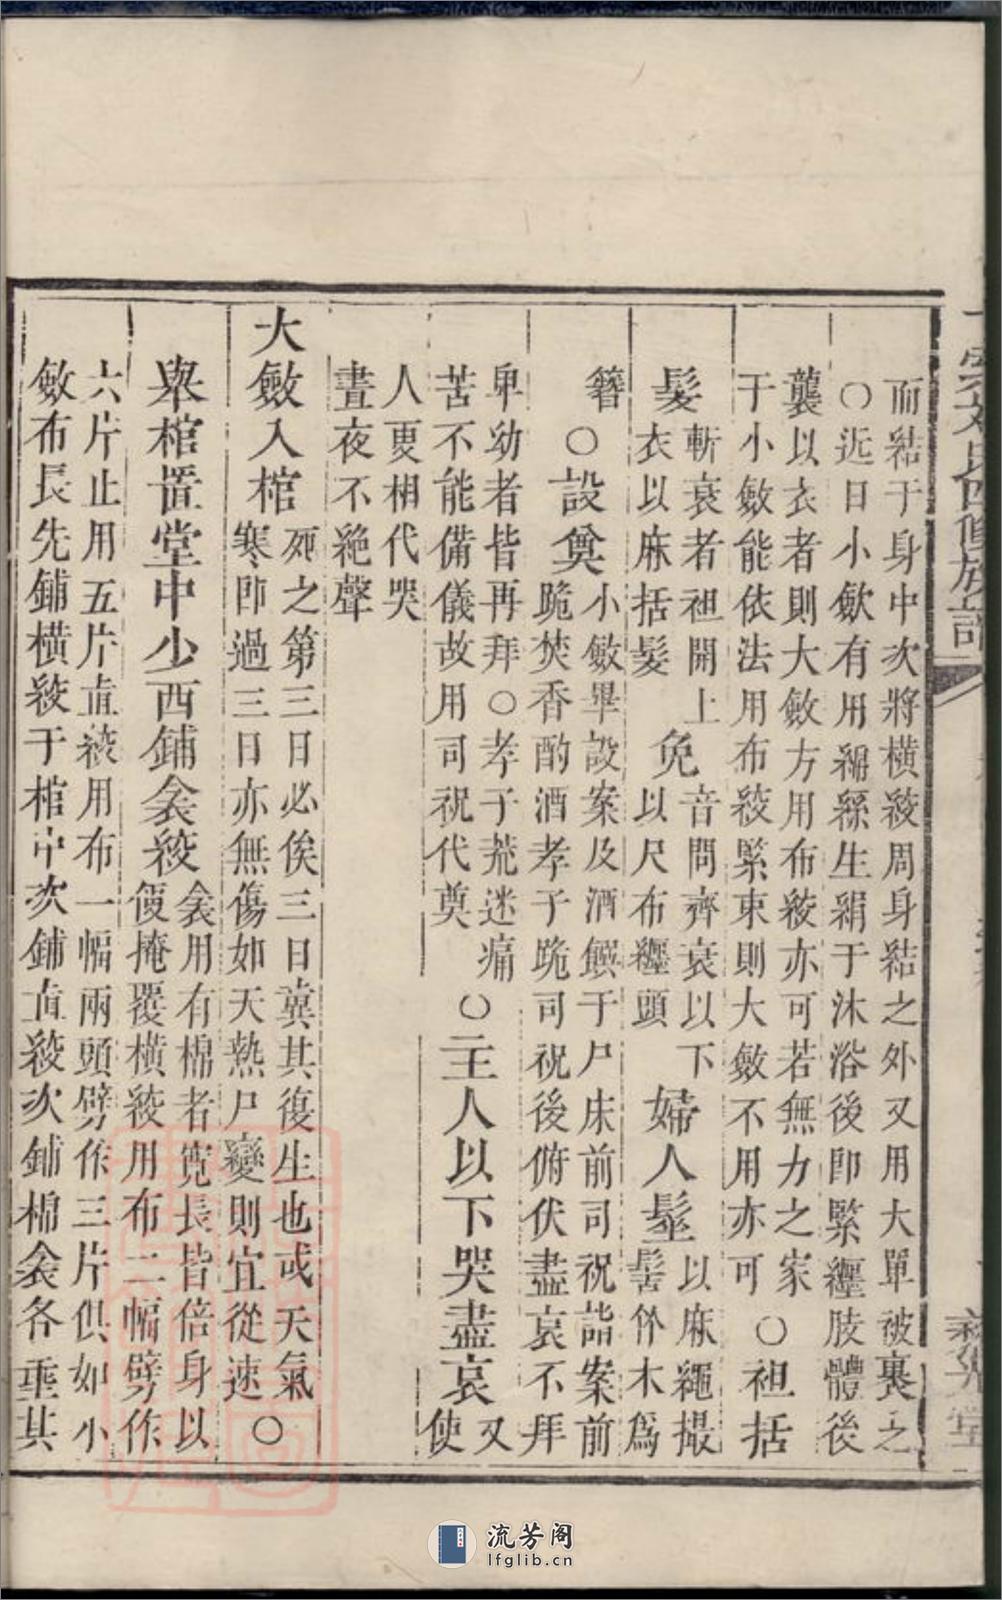 而結于身中次將橫絞周身結之外又用大單被裹之
○近日小歛有用綿縣生絹于沐浴後卽緊纏肢體後
襲以衣者則大斂方用布絞亦可若無力之家
于小斂能依法用布絞緊束則大斂不用亦可
○袒括
髮
斬衰者袒開上
衣以麻括髮
免
音問齊衰以下
以尺布纏頭
婦人髽
以麻繩撮
髻竹木爲
簪○設奠
小斂畢設案及酒饌于尸床前司祝詣案前
跪焚香酌酒孝子跪司祝後俯伏盡哀不拜
卑幼者皆再拜○孝子荒迷痛
苦不能備儀故用司祝代奠
○主人以下哭盡哀
又
使
人更相代哭
晝夜不絕聲
大斂入棺
死之第三日必俟三日冀其復生也或天氣
寒卽過三日亦無傷如天熱尸變則宜從速
○
舉棺置堂中少西鋪衾絞
衾用有棉者寬長皆倍身以
便掩覆橫絞用布二幅劈作
六片止用五片直絞用布一幅兩頭劈作三片俱如小
斂布長先鋪橫絞于棺中次鋪直絞次鋪棉衾各垂其
流芳阁
lfglib.cn